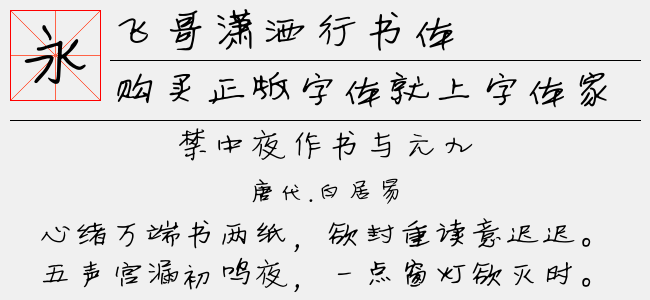 永
飞哥潇洒行书体
购买正版字体就上字体家
禁中夜作书与元九
唐代.白居易
心绪万端书两纸，欲封重读意迟迟。
五声宫漏初鸣夜，一点窗灯欲灭时。